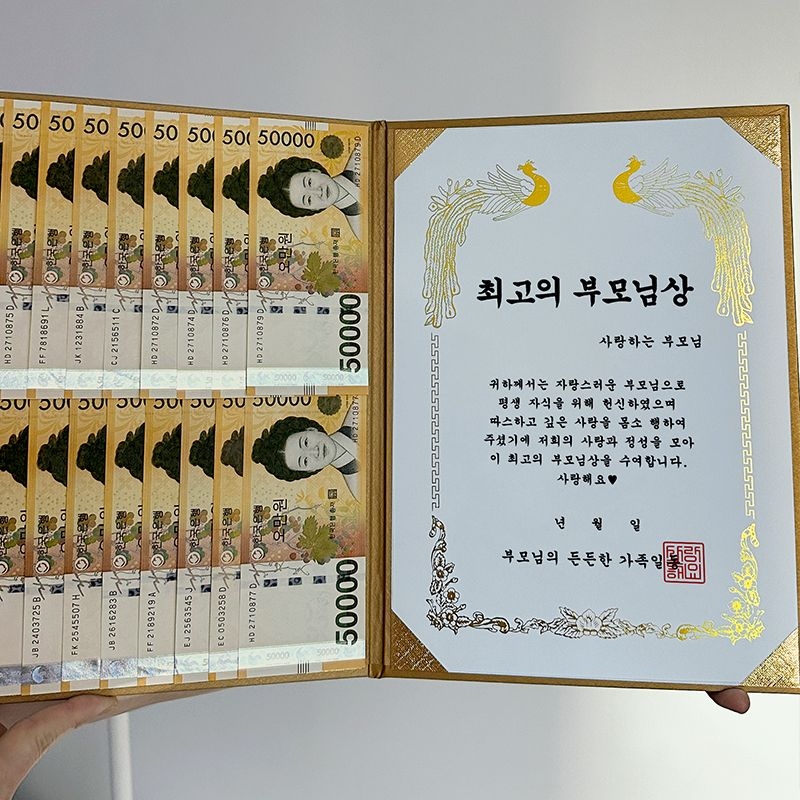 50000
50000
한국은행
오만원
한국은행 총재
HD 2710879 D
HD 2710875 D
FF 7818691 L
JK 1231884 B
CJ 2156511 C
HD 2710872 D
HD 2710874 D
HD 2710876 D
HD 2710879 D
50000
한국은행
오만원
한국은행 총재
JB 2403725 B
FK 2545507 H
JB 2616283 B
FF 2189219 A
EJ 2563545 J
EC 0503258 D
HD 2710877 D
50000
50000
50000
최고의 부모님상
사랑하는 부모님
귀하께서는 자랑스러운 부모님으로
평생 자식을 위해 헌신하였으며
따스하고 깊은 사랑을 몸소 행하여
주셨기에 저희의 사랑과 정성을 모아
이 최고의 부모님상을 수여합니다.
사랑해요♥
년 월 일
부모님의 든든한 가족일동